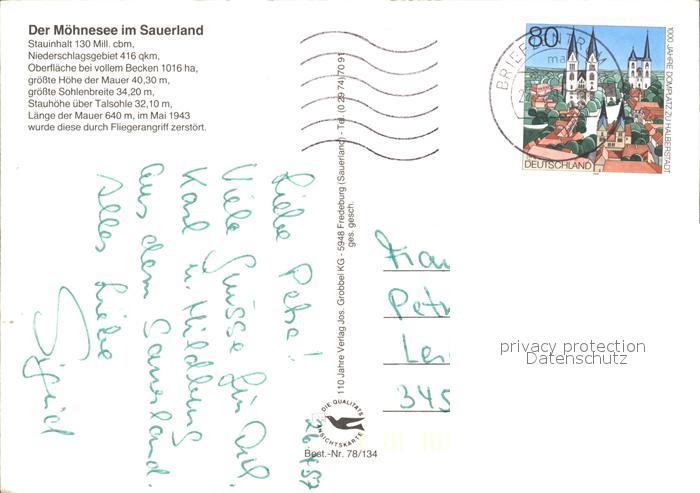 Der Möhnesee im Sauerland
Stauinhalt 130 Mill. cbm,
Niederschlagsgebiet 416 qkm,
Oberfläche bei vollem Becken 1016 ha,
größte Höhe der Mauer 40,30 m,
größte Sohlenbreite 34,20 m,
Stauhöhe über Talsohle 32,10 m,
Länge der Mauer 640 m, im Mai 1943
wurde diese durch Fliegerangriff zerstört.
Liebe Petra!
Viele Grüsse für Dich
Karl u.
aus dem Sauerland.
Alles Liebe
Sigrid
110 Jahre Verlag Jos. Grobbel KG - 5948 Fredeburg (Sauerland) - Tel. (0 29 74) 70 91
ges. gesch.
DIE QUALITÄTS
ANSICHTSKARTE
Best.-Nr. 78/134
BRIEFZENTRUM
80
1000 JAHRE DOMPLATZ ZU HALBERSTADT
DEUTSCHLAND
Frau
Petr
345
privacy protection
Datenschutz